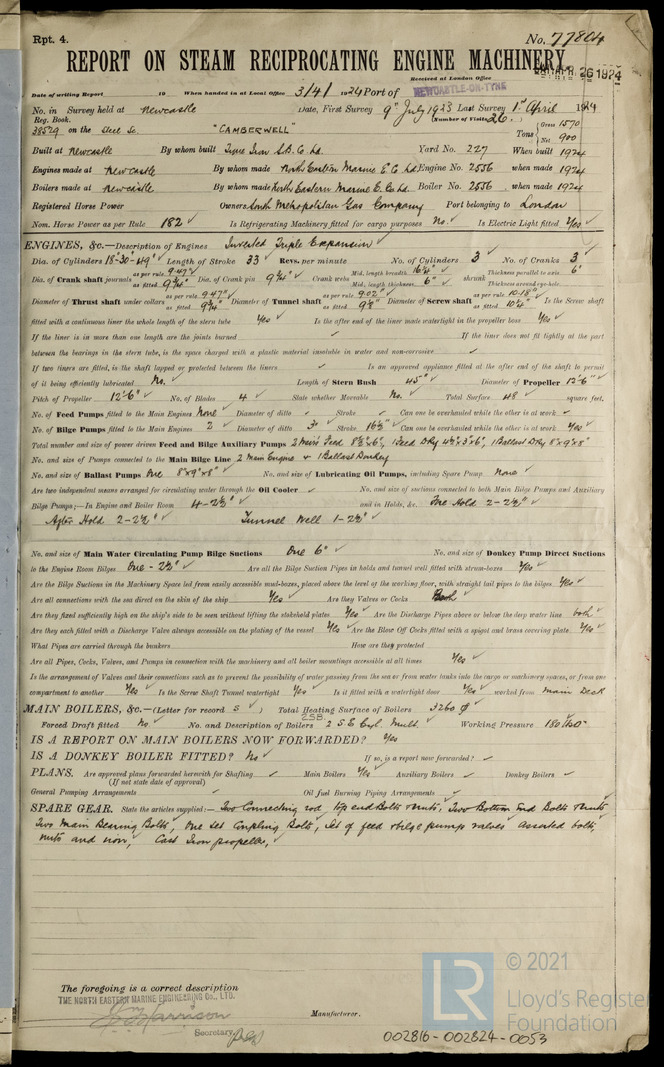 Rpt. 4. No. 77804
REPORT ON STEAM RECIPROCATING ENGINE MACHINERY.
Received at London Office 26 1924
Date of writing Report 19 When handed in at Local Office 3/4/ 1924 Port of NEWCASTLE-ON-TYNE
No. in Survey held at Newcastle Date, First Survey 9th July 1923 Last Survey 1st April 1924
Reg. Book. (Number of Visits 36.)
38529 on the Steel Sc. "CAMBERWELL" Tons Gross 1570 Net 900
Built at Newcastle By whom built Tyne Iron S.B. Co Ld Yard No. 227 When built 1924
Engines made at Newcastle By whom made North Eastern Marine E. Co Ld Engine No. 2556 when made 1924
Boilers made at Newcastle By whom made North Eastern Marine E. Co Ld. Boiler No. 2556 when made 1924
Registered Horse Power Owners South Metropolitan Gas Company Port belonging to London
Nom. Horse Power as per Rule 182 ✓ Is Refrigerating Machinery fitted for cargo purposes No. ✓ Is Electric Light fitted Yes ✓
ENGINES, &c.—Description of Engines Inverted Triple Expansion ✓
Dia. of Cylinders 18-30-49" ✓ Length of Stroke 33 ✓ Revs. per minute No. of Cylinders 3 ✓ No. of Cranks 3 ✓
Dia. of Crank shaft journals as per rule 9.47" as fitted 9¾" Dia. of Crank pin 9¾" ✓ Crank webs Mid. length breadth 16¼" Mid. length thickness 6" ✓ shrunk Thickness parallel to axis 6" Thickness around eye-hole
Diameter of Thrust shaft under collars as per rule 9.47" as fitted 9¾" Diameter of Tunnel shaft as per rule 9.02" as fitted 9½" Diameter of Screw shaft as per rule 10.18" as fitted 10¼" Is the Screw shaft
fitted with a continuous liner the whole length of the stern tube Yes ✓ Is the after end of the liner made watertight in the propeller boss Yes ✓
If the liner is in more than one length are the joints burned ✓ If the liner does not fit tightly at the part
between the bearings in the stern tube, is the space charged with a plastic material insoluble in water and non-corrosive ✓
If two liners are fitted, is the shaft lapped or protected between the liners ✓ Is an approved appliance fitted at the after end of the shaft to permit
of it being efficiently lubricated No. ✓ Length of Stern Bush 45" ✓ Diameter of Propeller 12'6" ✓
Pitch of Propeller 12'6" ✓ No. of Blades 4 ✓ State whether Moveable No. ✓ Total Surface 48 ✓ square feet.
No. of Feed Pumps fitted to the Main Engines None ✓ Diameter of ditto ✓ Stroke ✓ Can one be overhauled while the other is at work ✓
No. of Bilge Pumps fitted to the Main Engines 2 ✓ Diameter of ditto 3" ✓ Stroke 16½" ✓ Can one be overhauled while the other is at work Yes ✓
Total number and size of power driven Feed and Bilge Auxiliary Pumps 2 Main Feed 8½"x6", 1 Feed Dky 4½"x3"x6", 1 Ballast Dky 8"x9"x8"
No. and size of Pumps connected to the Main Bilge Line 2 Main Engine & 1 Ballast Donkey
No. and size of Ballast Pumps One 8"x9"x8" ✓ No. and size of Lubricating Oil Pumps, including Spare Pump None ✓
Are two independent means arranged for circulating water through the Oil Cooler ✓ No. and size of suctions connected to both Main Bilge Pumps and Auxiliary
Bilge Pumps;—In Engine and Boiler Room 4-2½" ✓ and in Holds, &c. Fore Hold 2-2½" ✓
After Hold 2-2½" ✓ Tunnel Well 1-2½" ✓
No. and size of Main Water Circulating Pump Bilge Suctions One 6" ✓ No. and size of Donkey Pump Direct Suctions
to the Engine Room Bilges One - 2½" ✓ Are all the Bilge Suction Pipes in holds and tunnel well fitted with strum-boxes Yes ✓
Are the Bilge Suctions in the Machinery Space led from easily accessible mud-boxes, placed above the level of the working floor, with straight tail pipes to the bilges Yes ✓
Are all connections with the sea direct on the skin of the ship Yes ✓ Are they Valves or Cocks Both ✓
Are they fixed sufficiently high on the ship's side to be seen without lifting the stokehold plates Yes ✓ Are the Discharge Pipes above or below the deep water line both ✓
Are they each fitted with a Discharge Valve always accessible on the plating of the vessel Yes ✓ Are the Blow Off Cocks fitted with a spigot and brass covering plate Yes ✓
What Pipes are carried through the bunkers How are they protected
Are all Pipes, Cocks, Valves, and Pumps in connection with the machinery and all boiler mountings accessible at all times Yes ✓
Is the arrangement of Valves and their connections such as to prevent the possibility of water passing from the sea or from water tanks into the cargo or machinery spaces, or from one
compartment to another Yes ✓ Is the Screw Shaft Tunnel watertight Yes ✓ Is it fitted with a watertight door Yes ✓ worked from Main Deck
MAIN BOILERS, &c.—(Letter for record S ✓ ) Total Heating Surface of Boilers 3260 ✓
Forced Draft fitted No. ✓ No. and Description of Boilers 2SB. 2 S.E. Cyl. Mult. ✓ Working Pressure 180 lbs ✓
IS A REPORT ON MAIN BOILERS NOW FORWARDED? Yes
IS A DONKEY BOILER FITTED? No ✓ If so, is a report now forwarded? ✓
PLANS. Are approved plans forwarded herewith for Shafting ✓ Main Boilers Yes ✓ Auxiliary Boilers ✓ Donkey Boilers ✓
(If not state date of approval)
General Pumping Arrangements ✓ Oil fuel Burning Piping Arrangements ✓
SPARE GEAR. State the articles supplied:— Two Connecting rod top end Bolts & nuts, Two Bottom End Bolts & nuts
Two Main Bearing Bolts, One set Coupling Bolts, Set of feed & bilge pump valves Assorted bolts,
nuts and iron, Cast Iron propeller,
The foregoing is a correct description
THE NORTH EASTERN MARINE ENGINEERING Co., LTD.
Harrison Manufacturer.
Secretary.
002816-002824-0053
© 2021
LR Lloyd's Register
Foundation